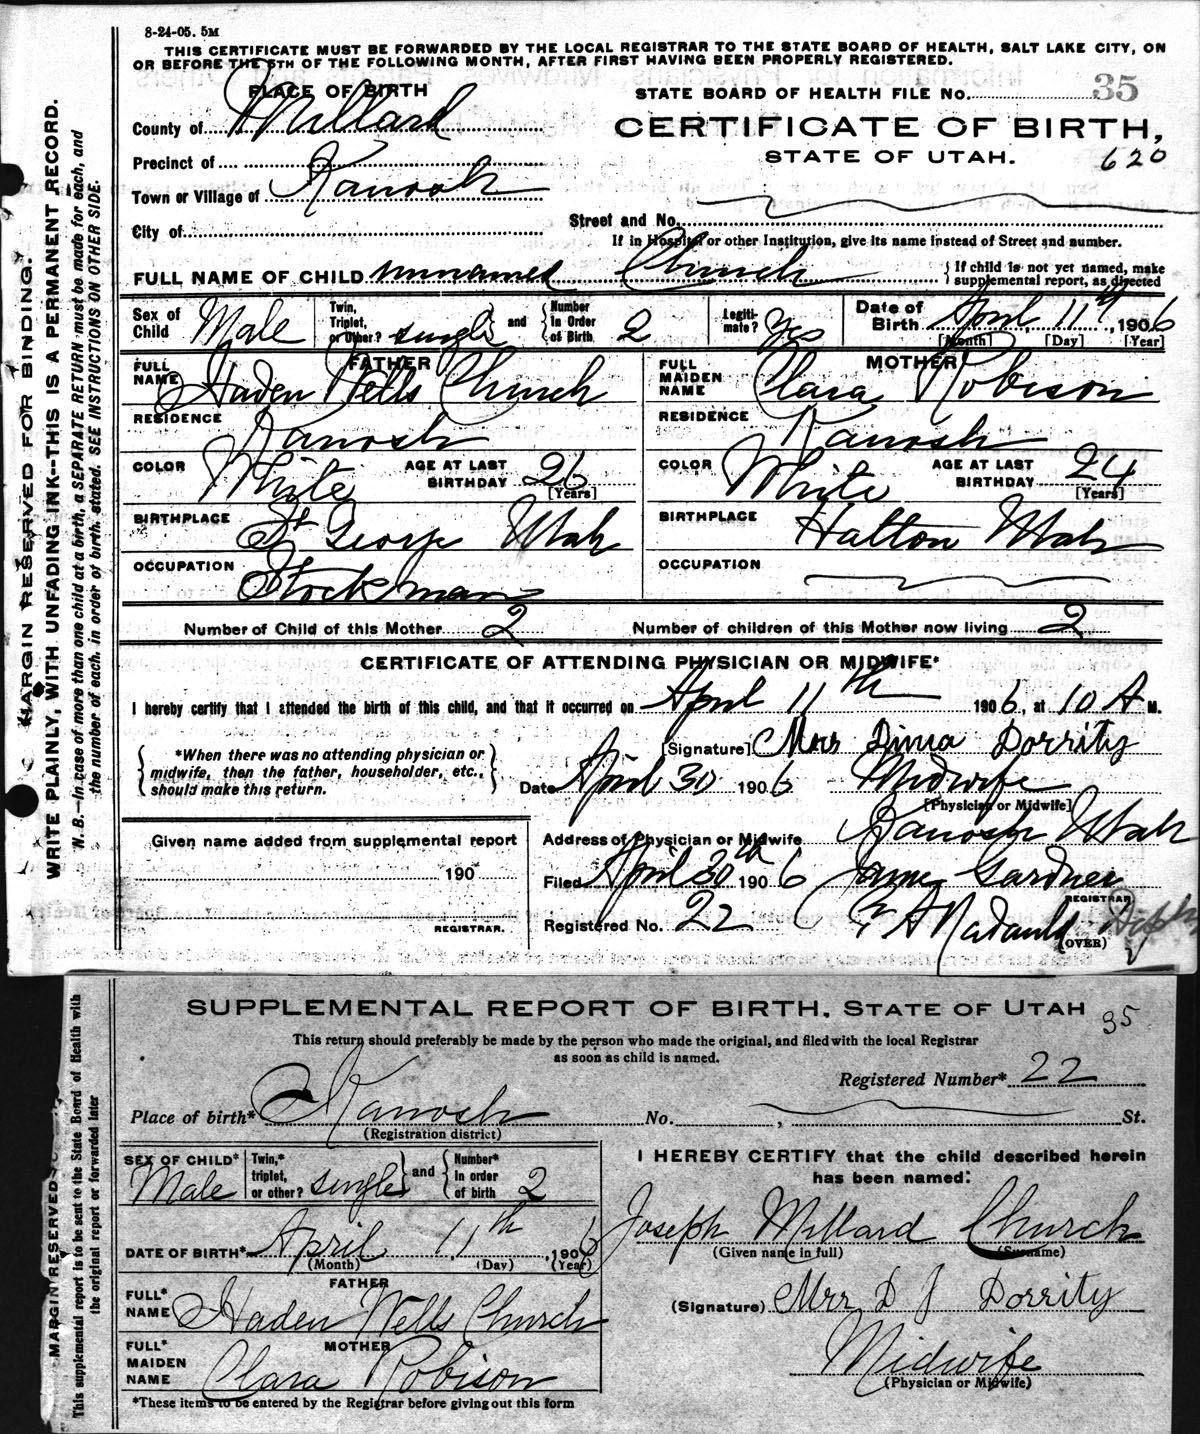 8-24-05. 5M
THIS CERTIFICATE MUST BE FORWARDED BY THE LOCAL REGISTRAR TO THE STATE BOARD OF HEALTH, SALT LAKE CITY, ON
OR BEFORE THE 5TH OF THE FOLLOWING MONTH, AFTER FIRST HAVING BEEN PROPERLY REGISTERED.
PLACE OF BIRTH
STATE BOARD OF HEALTH FILE No. 35
County of Millard
CERTIFICATE OF BIRTH,
STATE OF UTAH. 620
Precinct of
Town or Village of Kanosh
City of
Street and No.
If in Hospital or other Institution, give its name instead of Street and number.
FULL NAME OF CHILD unnamed Church { If child is not yet named, make supplemental report, as directed
Sex of Child Male Twin, Triplet, or Other? single and Number in Order of Birth 2 Legitimate? Yes Date of Birth April 11th, 1906
[Month] [Day] [Year]
FATHER
FULL NAME Haden Wells Church
RESIDENCE Kanosh
COLOR White AGE AT LAST BIRTHDAY 26 [Years]
BIRTHPLACE St George Utah
OCCUPATION Stockman
MOTHER
FULL MAIDEN NAME Clara Robison
RESIDENCE Kanosh
COLOR White AGE AT LAST BIRTHDAY 24 [Years]
BIRTHPLACE Hatton Utah
OCCUPATION
Number of Child of this Mother 2 Number of children of this Mother now living 2
CERTIFICATE OF ATTENDING PHYSICIAN OR MIDWIFE*
I hereby certify that I attended the birth of this child, and that it occurred on April 11th 1906, at 10 A M.
*When there was no attending physician or
midwife, then the father, householder, etc.,
should make this return.
[Signature] Mrs Dima Dorrity
Date April 30 1906 Midwife
[Physician or Midwife]
Given name added from supplemental report
190
REGISTRAR.
Address of Physician or Midwife Kanosh Utah
Filed April 30th 1906 James Gardner
REGISTRAR
Registered No. 22
(OVER)
MARGIN RESERVED FOR BINDING.
WRITE PLAINLY, WITH UNFADING INK--THIS IS A PERMANENT RECORD.
N. B.--In case of more than one child at a birth, a SEPARATE RETURN must be made for each, and
the number of each, in order of birth, stated. SEE INSTRUCTIONS ON OTHER SIDE.
SUPPLEMENTAL REPORT OF BIRTH. STATE OF UTAH 35
This return should preferably be made by the person who made the original, and filed with the local Registrar
as soon as child is named.
Registered Number* 22
Place of birth* Kanosh No. , St.
(Registration district)
SEX OF CHILD* Male Twin,* triplet, or other? single and Number* in order of birth 2
DATE OF BIRTH* April 11th, 1906
(Month) (Day) (Year)
FATHER
FULL* NAME Haden Wells Church
MOTHER
FULL* MAIDEN NAME Clara Robison
*These items to be entered by the Registrar before giving out this form
I HEREBY CERTIFY that the child described herein
has been named:
Joseph Millard Church
(Given name in full) (Surname)
(Signature) Mrs D J Dorrity
Midwife
(Physician or Midwife)
MARGIN RESERVED
This supplemental report is to be sent to the State Board of Health with
the original report or forwarded later